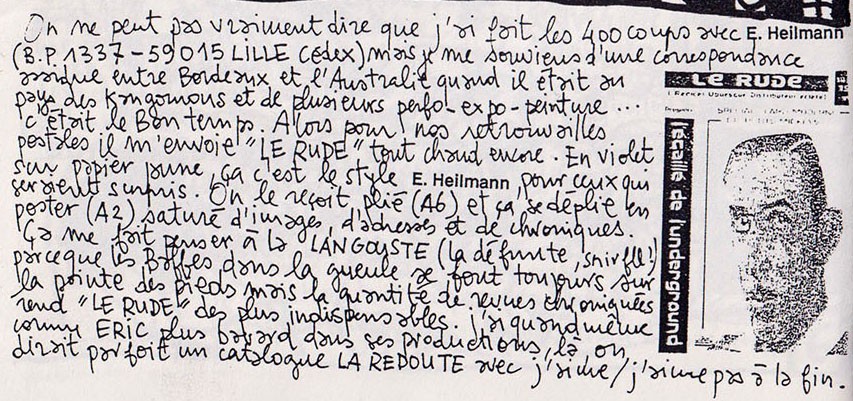 On ne peut pas vraiment dire que j'ai fait les 400 coups avec E. Heilmann
(B.P. 1337-59015 LILLE Cédex) mais je me souviens d'une correspondance
entre Bordeaux et l'Australie quand il était au
pays des Kangourous et de plusieurs perfo-expo-peinture...
c'était le Bon temps. Alors pour nos retrouvailles
postales il m'envoie "LE RUDE" tout chaud encore. En violet
sur papier jaune, ça c'est le style E. Heilmann, pour ceux qui
seraient surpris. On le reçoit plié (A6) et ça se déplie en
poster (A2) saturé d'images, d'adresses et de chroniques.
Ça me fait penser à la LANGOUSTE (la défunte, snirfle!)
parceque les Baffes dans la gueule se font toujours sur
la pointe des pieds mais la quantité de revues chroniquées
rend "LE RUDE" des plus indispensables. J'ai quand même
connu ERIC plus bavard dans ses productions, là on
dirait parfoit un catalogue LA REDOUTE avec j'aime/j'aime pas à la fin.
LE RUDE
l'écaille de l'underground